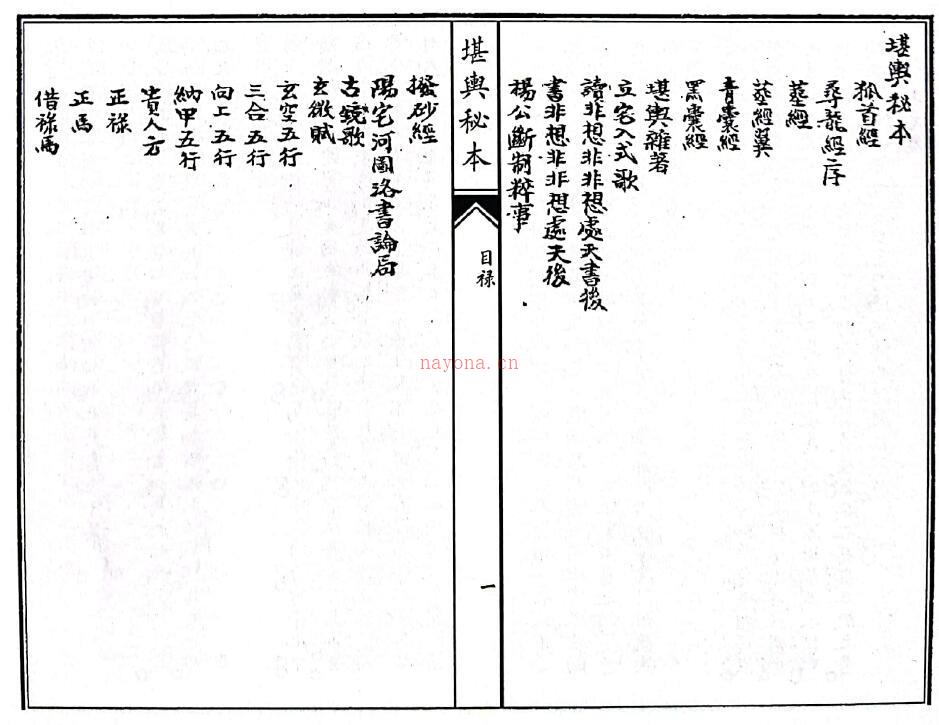 堪輿秘本
狐首經
尋龍經序
葬經
葬經翼
青囊經
黑囊經
堪輿雜著
立宅入式歌
讀非想非非想處天書後
書非想非非想處天後
楊公斷制粹事
堪輿秘本
目禄
一
撥砂經
陽宅河圖洛書論局
古鏡歌
玄微賦
玄空五行
三合五行
向上五行
納甲五行
貴人方
正祿
正馬
借祿馬
nayona.cn